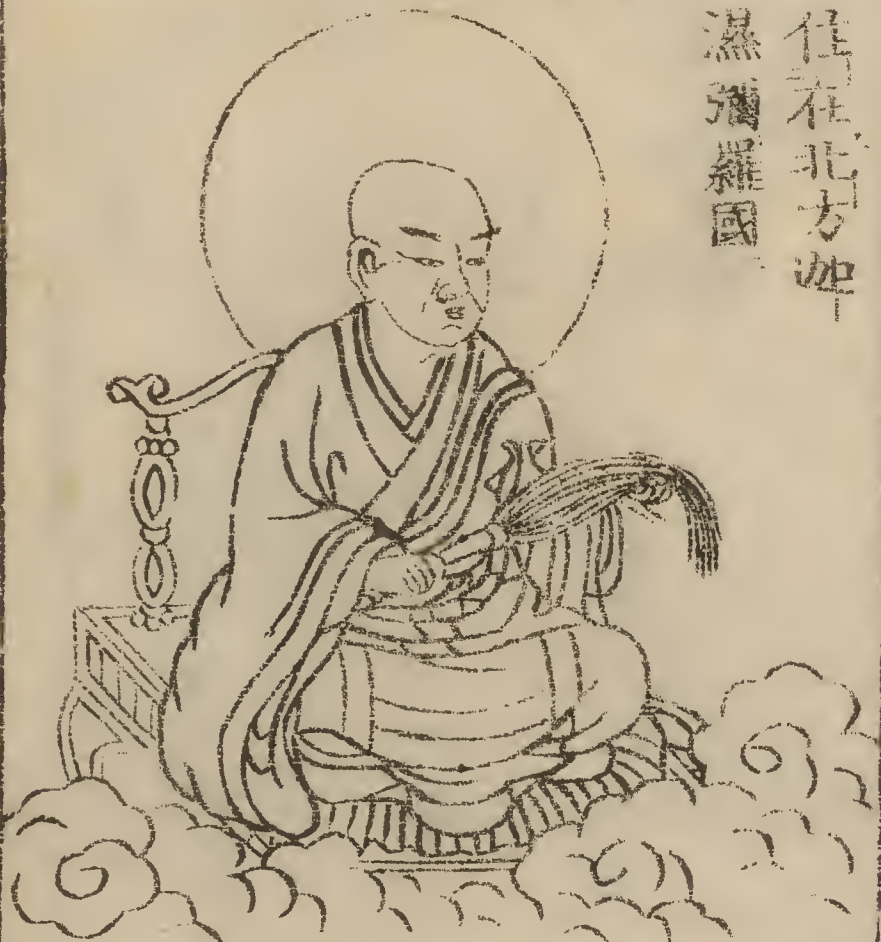 住在北方迦
濕彌羅國